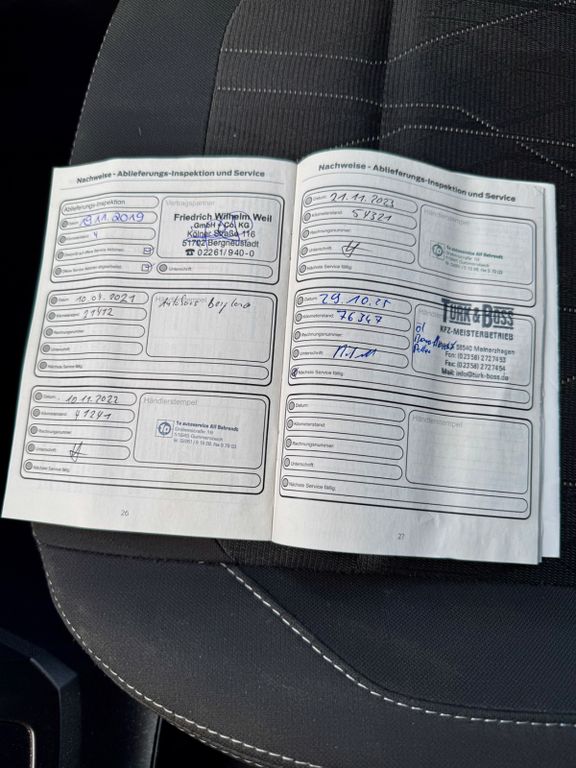 Nachweise - Ablieferungs-Inspektion und Service
Ablieferungs-Inspektion
Datum: 19.11.2019
4
Vertragspartner
Friedrich Wilhelm Weil
GmbH + Co. KG
Kölner Straße 116
51702 Bergneustadt
☎ 02261/940-0
Unterschrift:
Datum:
Kilometerstand: 21412
Rechnungsnummer:
Unterschrift:
Nächste Service fällig:
Händlerstempel
Datum: 10.11.2022
Kilometerstand: 41241
Rechnungsnummer:
Unterschrift:
Nächste Service fällig:
Händlerstempel
1a autoservice Alf Behrendt
51645 Gummersbach
26
Nachweise - Ablieferungs-Inspektion und Service
Datum: 21.11.2023
Kilometerstand: 54321
Rechnungsnummer:
Unterschrift:
Nächste Service fällig:
Händlerstempel
1a autoservice Alf Behrendt
51645 Gummersbach
Datum: 29.10.25
Kilometerstand: 76347
Rechnungsnummer:
Unterschrift:
Nächste Service fällig:
TÜRK & BOSS
KFZ-MEISTERBETRIEB
Öl
58540 Meinerzhagen
Fon: (02358) 2727453
Fax: (02358) 2727454
Mail: info@turk-boss.de
Datum:
Kilometerstand:
Rechnungsnummer:
Unterschrift:
Nächste Service fällig:
Händlerstempel
27